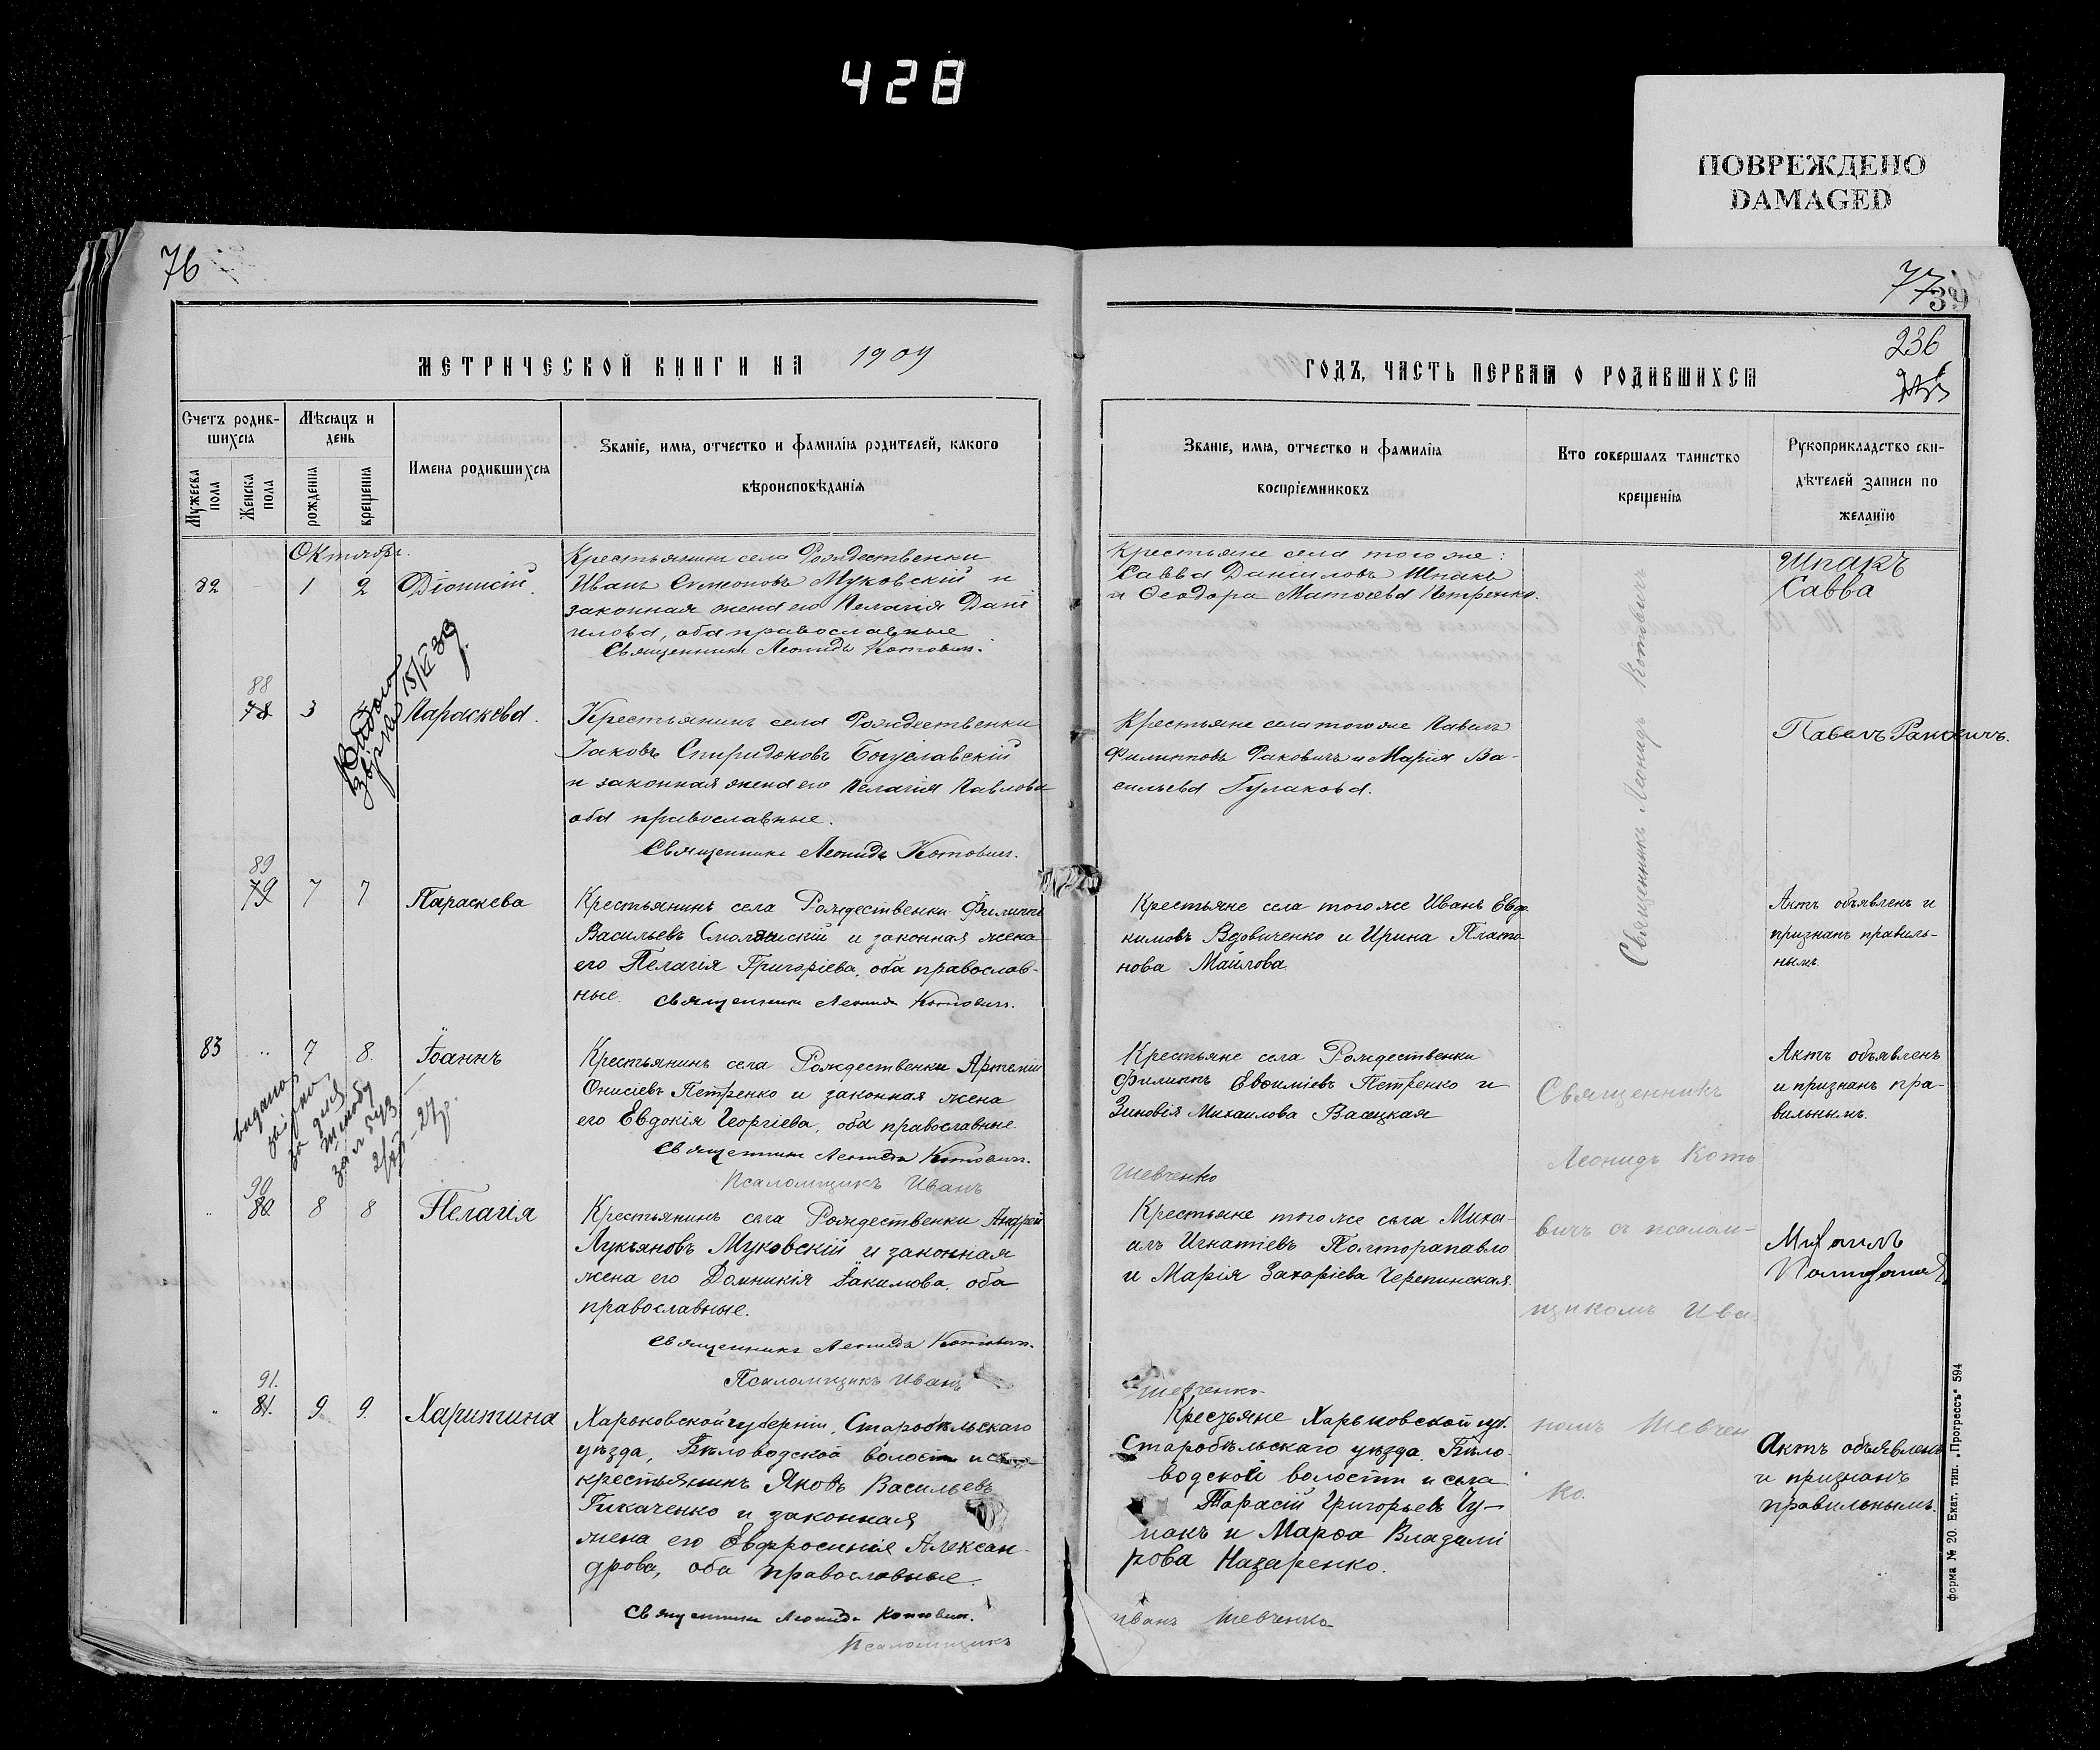 428
ПОВРЕЖДЕНО
DAMAGED
76
МЕТРИЧЕСКОЙ КНИГИ НА 1909
Счетъ родив-
шихся
Мѣсяцъ и
день
Имена родившихся
Званіе, имя, отчество и фамилія родителей, какого
вѣроисповѣданія
Мужеска
пола
Женска
пола
рожденія
крещенія
Октябрь.
82 1 2 Діонисій
Крестьянинъ села Рождественки
Иванъ Симоновъ Муковскій и
законная жена его Пелагія Дані
илова, оба православные
Священникъ Леонидъ Котович.
88
78 3 Параскева.
15/VI 39
Крестьянинъ села Рождественки
Іаковъ Спиридоновъ Богуславскій
и законная жена его Пелагія Павлова
оба православные.
Священникъ Леонидъ Котович.
89
79 7 7 Параскева
Крестьянинъ села Рождественки Филиппъ
Васильевъ и законная жена
его Пелагія Григоріева, оба православ-
ные. Священникъ Леонидъ Котович.
83 7 8. Іоаннъ
Крестьянинъ села Рождественки Артемій
Онисіевъ Петренко и законная жена
его Евдокія Георгіева, оба православные
Священникъ Леонидъ Котович.
Псаломщикъ Иванъ
90
80 8 8 Пелагія
Крестьянинъ села Рождественки Андрей
Лукьяновъ Муковскій и законная
жена его Домникія Іакимова, оба
православные.
Священникъ Леонидъ Котович.
Псаломщикъ Иванъ
91.
81. 9 9. Харитина
Харьковской губерніи, Старобѣльскаго
уѣзда, Бѣловодской волости и
крестьянинъ Яковъ Васильевъ
Ткаченко и законная
жена его Евфросинія Алексан-
дрова, оба православные.
Священникъ Леонидъ Котович.
Псаломщикъ
77
39
236
ГОДЪ, ЧАСТЬ ПЕРВАЯ О РОДИВШИХСЯ
Званіе, имя, отчество и фамилія
воспріемниковъ
Кто совершалъ таинство
крещенія
Рукоприкладство сви-
дѣтелей записи по
желанію
Крестьяне села того же:
Савва Даніиловъ Шпакъ
и Ѳеодора Матѳіева Петренко.
Шпакъ
Савва
Крестьяне села того же Павелъ
Филипповъ Раковичъ и Марія Ва-
сильева Гулакова.
Павелъ Раковичъ.
Священникъ Леонидъ Котовичъ
Крестьяне села того же Иванъ Евдо-
кимовъ Вдовиченко и Ирина Плато-
нова Майлова.
Актъ объявленъ и
признанъ правиль-
нымъ.
Крестьяне села Рождественки
Филиппъ Евѳиміевъ Петренко и
Зиновія Михаилова
Шевченко
Актъ объявленъ
и признанъ пра-
вильнымъ.
Священникъ
Леонидъ Кото
вичъ съ псалом-
щикомъ Ива-
номъ Шевчен
ко.
Крестьяне того же села Миха-
илъ Игнатіевъ Полторапавло
и Марія Захаріева Черепинская.
Шевченко
Михаилъ
Крестьяне Харьковской губ.
Старобѣльскаго уѣзда, Бѣло-
водской волости и села
Тарасій Григорьевъ Чу-
макъ и Марѳа Владими
рова Назаренко.
Иванъ Шевченко
Актъ объявленъ
и признанъ
правильнымъ.
Форма № 20. Екат. тип. „Прогрессъ“ 594